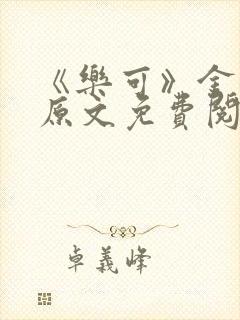 《樂可》全
原文免費閱
卓義峰